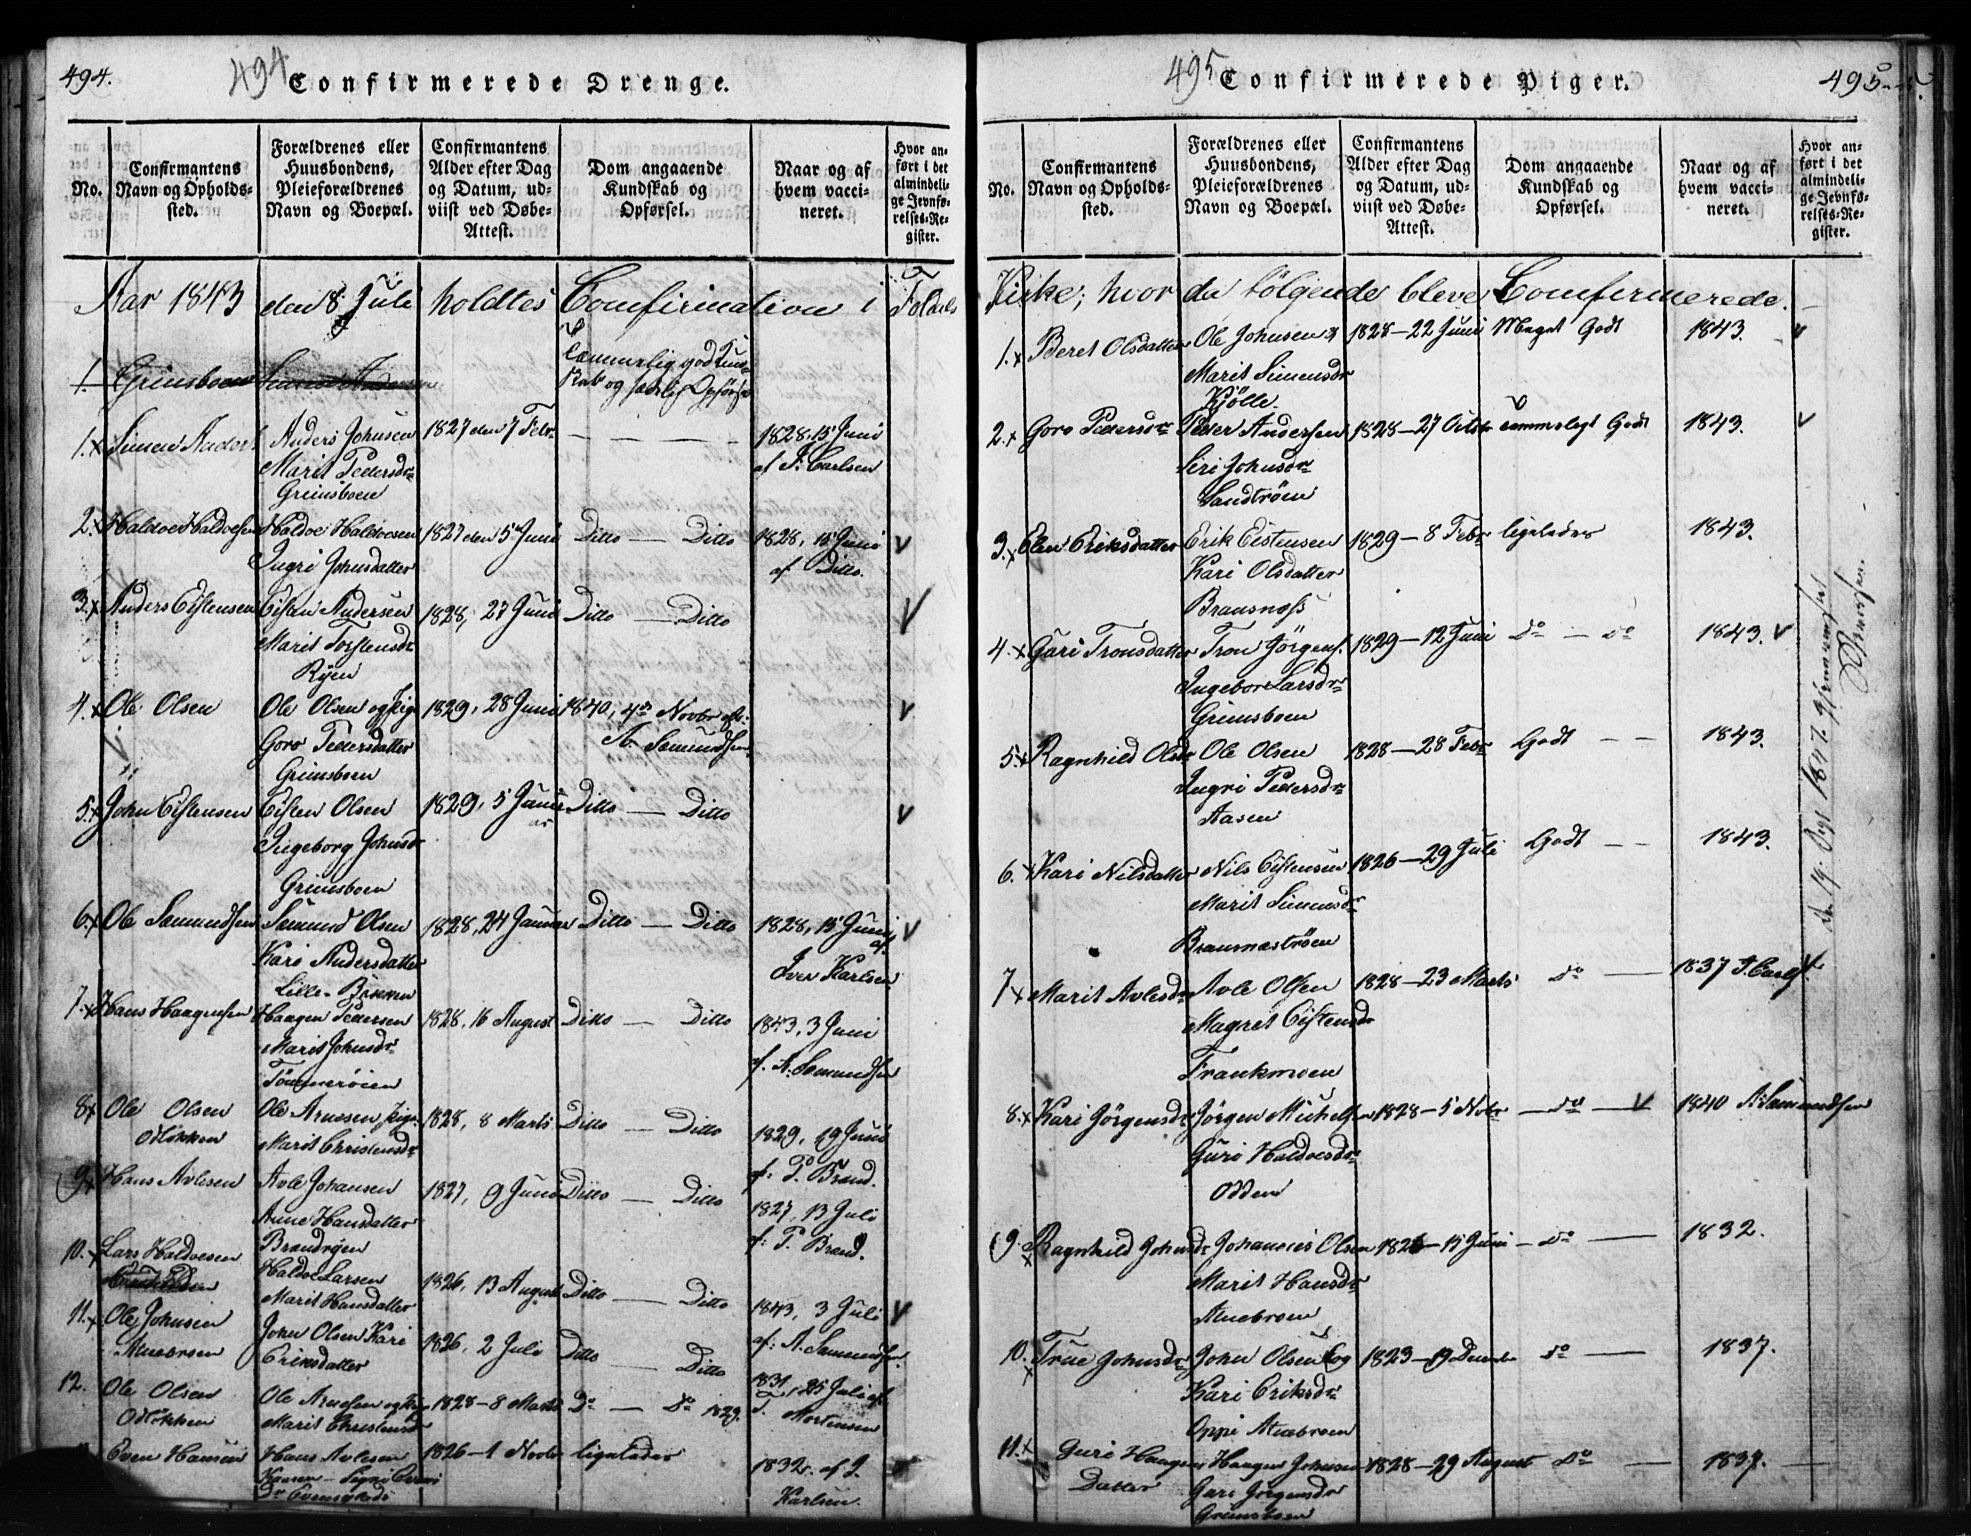 494.
494
Confirmerede Drenge.
No.
Confirmantens
Navn og Opholds-
sted.
Forældrenes eller
Huusbondens,
Pleieforældrenes
Navn og Boepæl.
Confirmantens
Alder efter Dag
og Datum, ud-
viist ved Døbe-
Attest.
Dom angaaende
Kundskab og
Opførsel.
Naar og af
hvem vacci-
neret.
Hvor an-
ført i det
almindeli-
ge Jevnfø-
relses-Re-
gister.
Aar 1843 den 8 Juli holdtes Comfirmation i Foldals
1. Grimsboen Simen Andersen
Temmerlig god Kun-
skab og sædelig Opførsel
1. x Simen Anders. Anders Johnsen 1827 den 7 Febr. — — — — 1828, 15 Juni
Marit Pedersdr. af J. Carlsen
Grimsboen
2. x Haldoe Haldoesen Haldoe Haldoesen 1827 den 5 Juni Ditto — Ditto 1828, 15 Juni
Ingri Johnsdatter af Ditto.
3. x Anders Eistensen Eisten Andersen 1828, 27 Juni Ditto — Ditto
Marit Torstensdr.
Ryen
4. x Ole Olsen Ole Olsen og Pige 1829, 28 Juni 1840, 4de Novbr af
Goro Pedersdatter A. Samundsen
Grimsboen
5. x John Eistensen Eisten Olsen 1829, 5 Januar Ditto — Ditto
Ingeborg Johnsdr
Grimsboen
6. x Ole Samundsen Samund Olsen 1828, 24 Januar Ditto — Ditto 1828, 15 Juni
af
Kari Andersdatter Iver Karlsen
Lille-Bakken
7. x Hans Haagensen Haagen Pedersen 1828, 16 August Ditto — Ditto 1843, 3 Juni
Marit Johnsdr. af. A. Samundsen
Tømmerøien
8. x Ole Olsen Ole Arnesen, Pige 1828, 8 Marts Ditto — Ditto 1829, 19 Juni
Odløkken Marit Christensdr af. P. Brand.
9. x Hans Avlesen Avle Johansen 1827, 9 Juni Ditto — Ditto 1827, 13 Juli
Anne Hansdatter af: P. Brand.
Brandryen
10. x Lars Haldoesen Haldoe Larsen 1826, 13 August Ditto — Ditto 1843, 3 Juli
Marit Hansdatter af: A. Samundsen
11. x Ole Johnsen John Olsen Kari 1826, 2 Juli Ditto — Ditto 1831, 25 Juli af
Atnebroen Eriksdatter T. Mortensen
12. Ole Olsen Ole Arnesen og Pige 1828 – 8 Marts Do — Do 1829.
Odløkken Marit Christensdr
Even Hansen Hans Avlesen 1826 – 1 Novbr ligeledes 1832. af J.
Karlsen.
495
Confirmerede Piger.
495
No.
Confirmantens
Navn og Opholds-
sted.
Forældrenes eller
Huusbondens,
Pleieforældrenes
Navn og Boepæl.
Confirmantens
Alder efter Dag
og Datum, ud-
viist ved Døbe-
Attest.
Dom angaaende
Kundskab og
Opførsel.
Naar og af
hvem vacci-
neret.
Hvor an-
ført i det
almindeli-
ge Jevnfø-
relses-Re-
gister.
Kirke, hvor da følgende bleve Comfirmerede.
1. x Beret Olsdatter Ole Johnsen 1828 – 22 Juni Meget Godt 1843.
Marit Simensdr
Kjølle
2. x Goro Pedersdr Peder Andersen 1828 – 27 Octobr temmeligt Godt 1843.
Siri Johnsdr
Sandtrøen
3. x Elen Eriksdatter Erik Eistensen 1829 – 8 Febr ligeledes 1843.
Kari Olsdatter
Brænsnæss
4. x Guri Tronsdatter Tron Jørgens. 1829 – 12 Juni Do – Do 1843.
Ingebor Larsdr
Grimsboen
5. x Ragnhild Olsdr Ole Olsen 1828 – 28 Febr Godt — — 1843.
Ingri Pedersdr
Aasen
6. x Kari Nilsdatter Nils Eistensen 1826 – 29 Juli Godt — — 1843.
Marit Simensdr
7. x Marit Avlesdr Avle Olsen 1828 – 23 Marts Do — 1837 J. Carls.
Magnet Eistensdr
Frankmoen
8. x Kari Jørgensdr Jørgen Mickelsen 1828 – 5 Novbr — Do — 1840 A. Samundsen
Guri Haldoesdr
Odden
9. x Ragnhild Johnsdr Johannes Olsen 1826 – 15 Juni – Do — 1832.
Marit Hansdr
Atnebroen
10. x True Johnsdr John Olsen og 1823 – 19 Decembr Do — 1837.
Kari Eriksdr
Oppi Atnebroen
11. x Guri Haagens Haagen Johnsen 1828 – 29 August Do — 1837.
Datter Guri Jørgensdr
Grimsboen